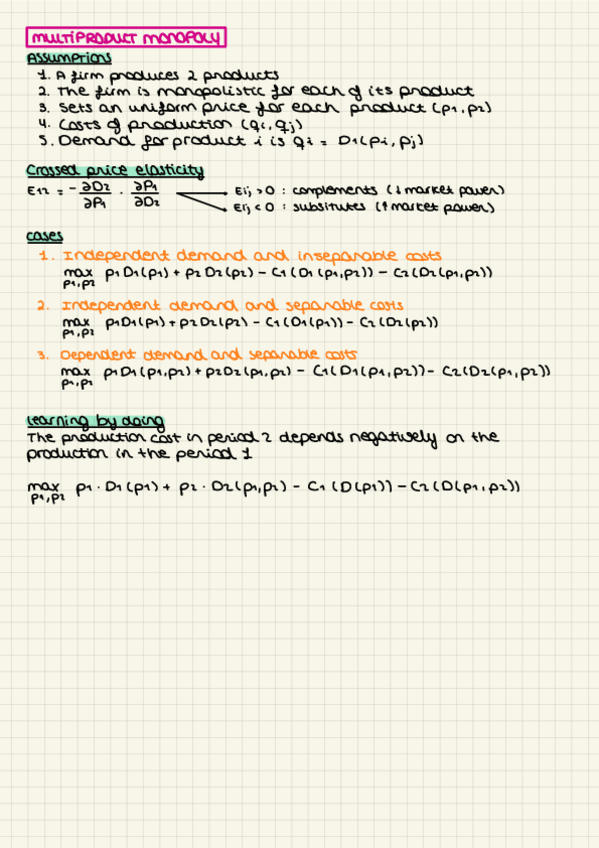 MULTIPRODUCT MONOPOLY
Assumptions
1. A firm produces 2 products
2. The firm is monopolistic for each of its product
3. Sets an uniform price for each product (p1, p2)
4. Costs of production (qi, qj)
5. Demand for product i is qi = D1(pi, pj)
Crossed price elasticity
E12 = - ∂D2/∂P1 · ∂P1/∂D2 → Eij > 0 : complements (↓ market power)
→ Eij < 0 : subsitutes (↑ market power)
cases
1. Independent demand and inseparable costs
max p1 D1(p1) + p2 D2(p2) - C1(D1(p1,p2)) - C2(D2(p1,p2))
p1,p2
2. Independent demand and separable costs
max p1D1(p1) + p2D2(p2) - C1(D1(p1)) - C2(D2(p2))
p1,p2
3. Dependent demand and separable costs
max p1D1(p1,p2) + p2D2(p1,p2) - C1(D1(p1,p2)) - C2(D2(p1,p2))
p1,p2
learning by doing
The production cost in period 2 depends negatively on the
production in the period 1
max p1 · D1(p1) + p2 · D2(p1,p2) - C1(D(p1)) - C2(D(p1,p2))
p1,p2